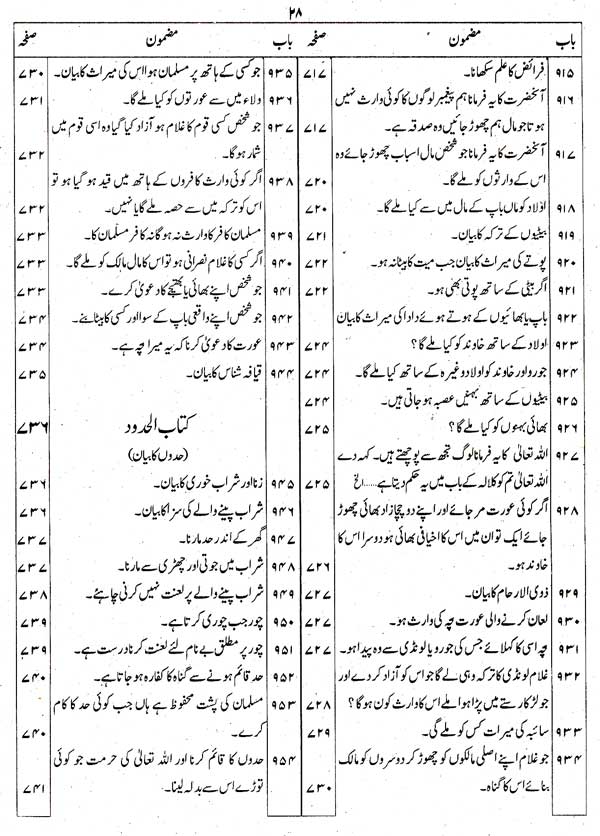 ۲۸
باب مضمون صفحہ
۹۱۵ فرائض کا علم سکھانا۔ ۷۱۷
۹۱۶ آنحضرت کا یہ فرمانا ہم پیغمبر لوگوں کا کوئی وارث نہیں
ہوتا جو مال ہم چھوڑ جائیں وہ صدقہ ہے۔ ۷۱۷
۹۱۷ آنحضرت کا یہ فرمانا جو شخص مال اسباب چھوڑ جائے وہ
اس کے وارثوں کو ملے گا۔ ۷۲۰
۹۱۸ اولاد کو ماں باپ کے مال میں سے کیا ملے گا۔ ۷۲۰
۹۱۹ بیٹیوں کے ترکہ کا بیان۔ ۷۲۱
۹۲۰ پوتے کی میراث کا بیان جب میت کا بیٹا نہ ہو۔ ۷۲۲
۹۲۱ اگر بیٹی کے ساتھ پوتی بھی ہو۔ ۷۲۲
۹۲۲ باپ یا بھائیوں کے ہوتے ہوئے دادا کی میراث کا بیان
۹۲۳ اولاد کے ساتھ خاوند کو کیا ملے گا؟ ۷۲۴
۹۲۴ جورو اور خاوند کو اولاد وغیرہ کے ساتھ کیا ملے گا۔ ۷۲۴
۹۲۵ بیٹیوں کے ساتھ بہنیں عصبہ ہو جاتی ہیں۔ ۷۲۴
۹۲۶ بھائی بہنوں کو کیا ملے گا؟ ۷۲۵
۹۲۷ اللہ تعالیٰ کا یہ فرمانا لوگ تجھ سے پوچھتے ہیں۔ کہہ دے
اللہ تعالیٰ تم کو کلالہ کے باب میں یہ حکم دیتا ہے......الخ ۷۲۵
۹۲۸ اگر کوئی عورت مر جائے اور اپنے دو چچازاد بھائی چھوڑ
جائے ایک تو ان میں اس کا اخیافی بھائی ہو دوسرا اس کا
خاوند ہو۔ ۷۲۶
۹۲۹ ذوی الارحام کا بیان۔ ۷۲۷
۹۳۰ لعان کرنے والی عورت بچہ کی وارث ہو۔ ۷۲۷
۹۳۱ بچہ اسی کا کہلائے جس کی جورو یا لونڈی سے وہ پیدا ہو۔ ۷۲۷
۹۳۲ غلام لونڈی کا ترکہ وہی لے گا جو اس کو آزاد کر دے اور
جو لڑکا رستے میں پڑا ہوا ملے اس کا وارث کون ہوگا؟ ۷۲۸
۹۳۳ سائبہ کی میراث کس کو ملے گی۔ ۷۲۹
۹۳۴ جو غلام اپنے اصلی مالکوں کو چھوڑ کر دوسروں کو مالک
بنائے اس کا گناہ۔ ۷۳۰
باب مضمون صفحہ
۹۳۵ جو کسی کے ہاتھ پر مسلمان ہوا اس کی میراث کا بیان۔ ۷۳۰
۹۳۶ ولاء میں سے عورتوں کو کیا ملے گا۔ ۷۳۱
۹۳۷ جو شخص کسی قوم کا غلام ہو آزاد کیا گیا وہ اسی قوم میں
شمار ہوگا۔ ۷۳۲
۹۳۸ اگر کوئی وارث کافروں کے ہاتھ میں قید ہو گیا ہو تو
اس کو ترکہ میں سے حصہ ملے گا یا نہیں۔ ۷۳۲
۹۳۹ مسلمان کافر کا وارث نہ ہوگا نہ کافر مسلمان کا۔ ۷۳۳
۹۴۰ اگر کسی کا غلام نصرانی ہو تو اس کا مال مالک کو ملے گا۔ ۷۳۳
۹۴۱ جو شخص اپنے بھائی یا بھتیجے کا دعویٰ کرے۔ ۷۳۳
۹۴۲ جو شخص اپنے واقعی باپ کے سوا اور کسی کا بیٹا بنے۔ ۷۳۴
۹۴۳ عورت کا دعویٰ کرنا کہ یہ میرا بچہ ہے۔ ۷۳۴
۹۴۴ قیافہ شناس کا بیان۔ ۷۳۵
کتاب الحدود ۷۳۶
(حدوں کا بیان)
۹۴۵ زنا اور شراب خوری کا بیان۔ ۷۳۶
۹۴۶ شراب پینے والے کی سزا کا بیان۔ ۷۳۶
۹۴۷ گھر کے اندر حد مارنا۔ ۷۳۷
۹۴۸ شراب میں جوتی اور چھڑی سے مارنا۔ ۷۳۷
۹۴۹ شراب پینے والے پر لعنت نہیں کرنی چاہئے۔ ۷۳۸
۹۵۰ چور جب چوری کرتا ہے۔ ۷۳۹
۹۵۱ چور پر مطلق بے نام لئے لعنت کرنا درست ہے۔ ۷۳۹
۹۵۲ حد قائم ہونے سے گناہ کا کفارہ ہو جاتا ہے۔ ۷۴۰
۹۵۳ مسلمان کی پشت محفوظ ہے ہاں جب کوئی حد کا کام
کرے۔ ۷۴۰
۹۵۴ حدوں کا قائم کرنا اور اللہ تعالیٰ کی حرمت جو کوئی
توڑے اس سے بدلہ لینا۔ ۷۴۱